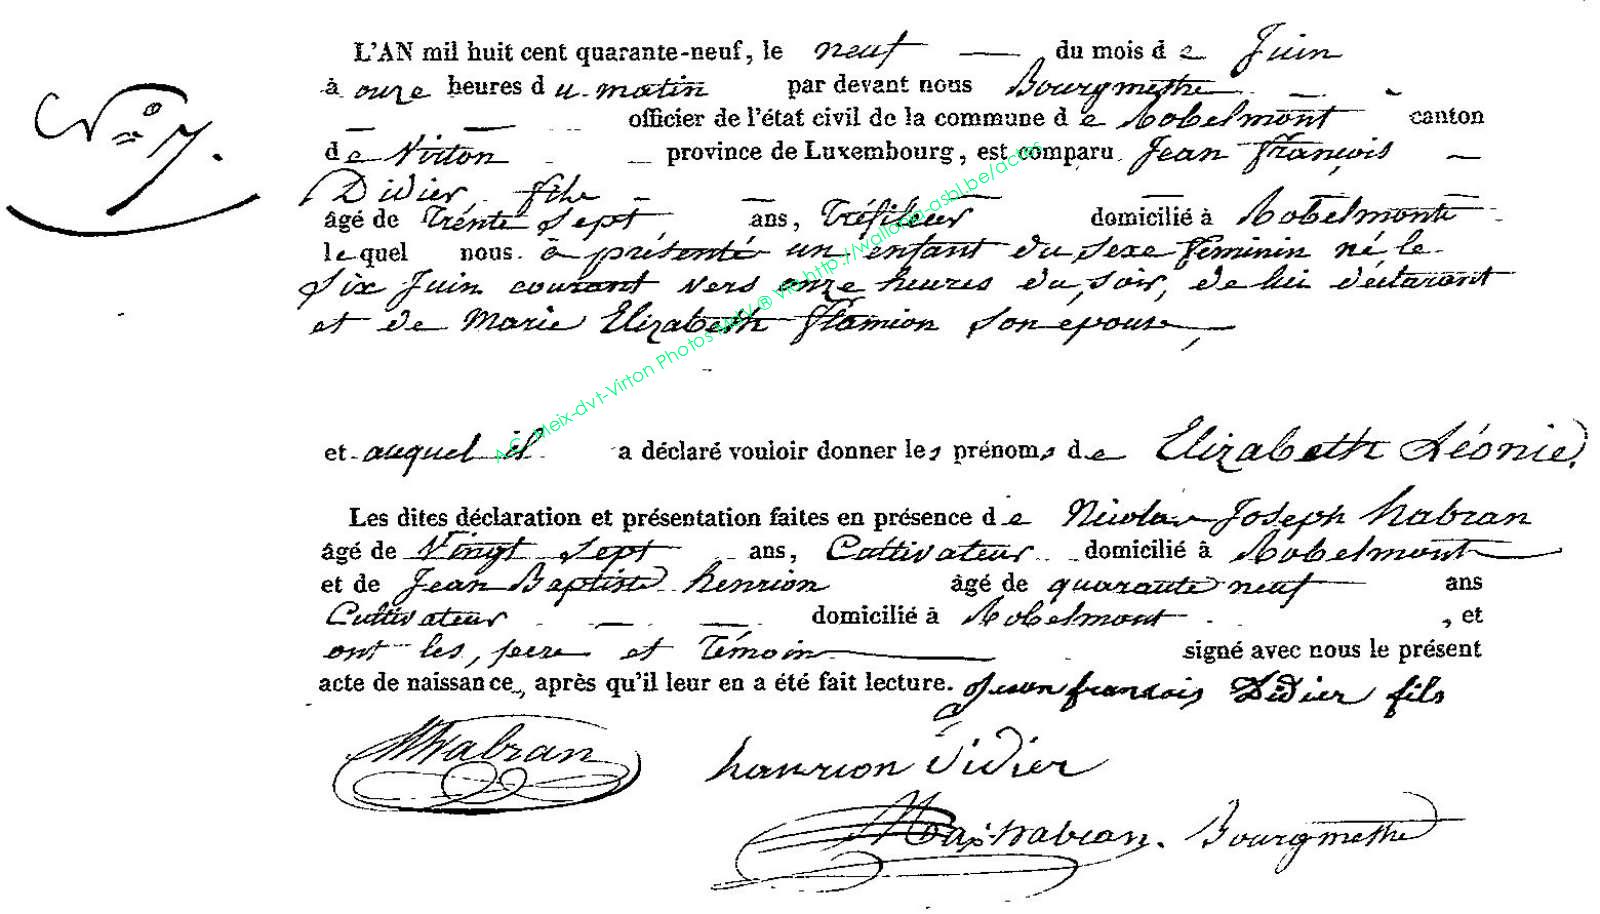 L'AN mil huit cent quarante-neuf, le neuf du mois de Juin
N° 7.
à onze heures du matin par devant nous Bourgmethre
officier de l'état civil de la commune de Robelmont canton
de Virton province de Luxembourg, est comparu Jean François
Didier fils
âgé de Trénte Sept ans, Tréfileur domicilié à Robelmont
lequel nous à présenté un enfant du sexe feminin né le
Six Juin courant vers onze heures du soir, de lui déclarant
et de Marie Elizabeth Flamion son epouse,
A.C. Meix-dvt-Virton Photos MetV ® via http://wallonia-asbl.be/actes
et auquel il a déclaré vouloir donner les prénoms de Elizabeth Léonie.
Les dites déclaration et présentation faites en présence de Nicolas Joseph habran
âgé de Vingt Sept ans, Cultivateur domicilié à Robelmont
et de Jean Baptiste henrion âgé de quarante neuf ans
Cultivateur domicilié à Robelmont, et
ont les pere et Témoin signé avec nous le présent
acte de naissance, après qu'il leur en a été fait lecture. Jean francois Didier fils
habran
hanrion Didier
habran. Bourgmethre